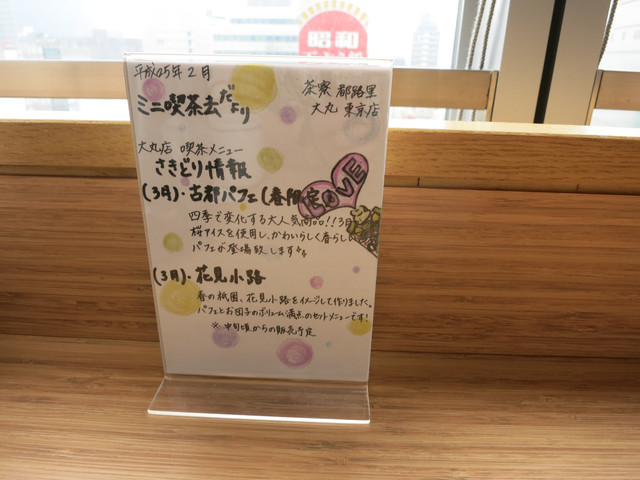 昭和
平成25年2月
茶寮 都路里
大丸 東京店
ミニ喫茶去だより
大丸店 喫茶メニュー
さきどり情報
(3月)・古都パフェ(春限定
LOVE
四季で変化する大人気商品!!3月
桜アイスを使用し、かわいらしく春らしい
パフェが登場致します
(3月)・花見小路
春の祇園、花見小路をイメージして作りました。
パフェとお団子のボリューム満点のセットメニューです!
※中旬頃からの販売予定